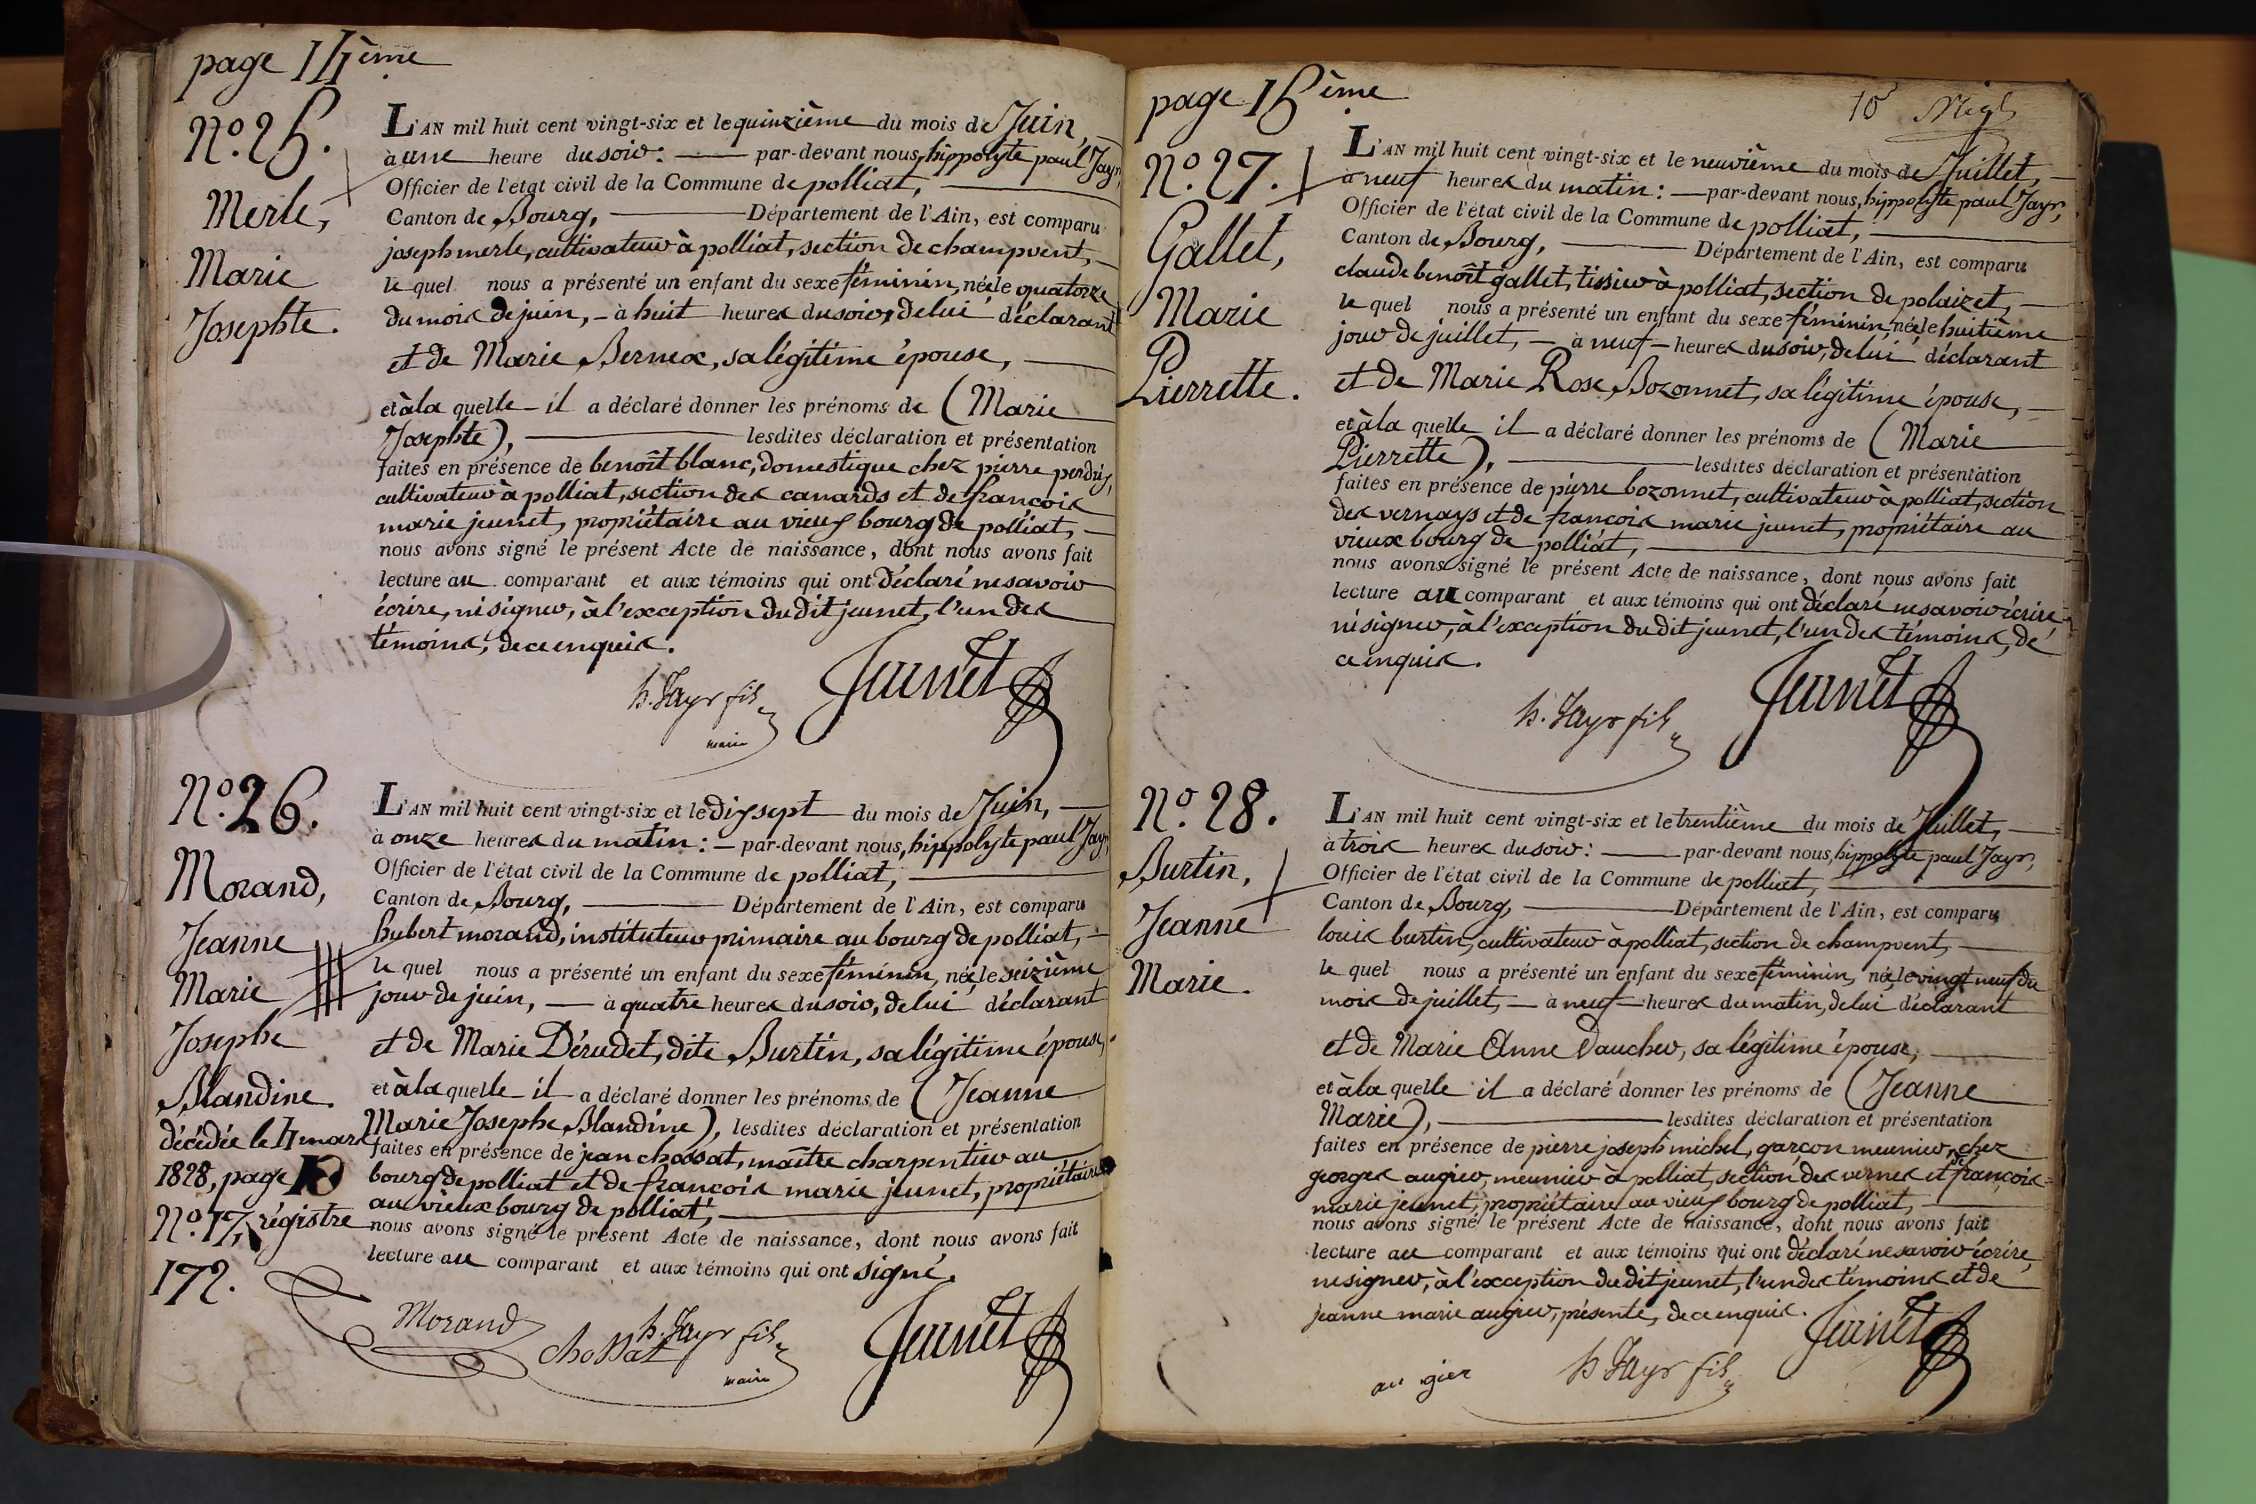 page 14ème
N.° 25.
Merle,
Marie
Josephte.
L'AN mil huit cent vingt-six et le quinzième du mois de Juin,
à une heure du soir : par-devant nous, hippolyte paul Jayr,
Officier de l'état civil de la Commune de polliat,
Canton de Bourg, Département de l'Ain, est comparu
joseph merle, cultivateur à polliat, section de champvent,
le quel nous a présenté un enfant du sexe féminin, née le quatorze
du mois de juin, - à huit heures du soir, de lui déclarant
et de Marie Bernex, sa légitime épouse,
et à la quelle - il a déclaré donner les prénoms de (Marie
Josephte), lesdites déclaration et présentation
faites en présence de benoît blanc, domestique chez pierre perdrix,
cultivateur à polliat, section des canards et de françois
marie jeunet, propriétaire au vieux bourg de polliat,
nous avons signé le présent Acte de naissance, dont nous avons fait
lecture au comparant et aux témoins qui ont déclaré ne savoir
écrire, ni signer, à l'exception du dit jeunet, l'un des
témoins, de ce enquis.
h. Jayr fils
maire
Jeunet
N.° 26.
Morand,
Jeanne
Marie
Josephe
Blandine.
décédée le 4 mars
1828, page 10
N.° 17, régistre
172.
L'AN mil huit cent vingt-six et le dixsept du mois de Juin,
à onze heures du matin : - par-devant nous, hippolyte paul Jayr,
Officier de l'état civil de la Commune de polliat,
Canton de Bourg, Département de l'Ain, est comparu
hubert morand, instituteur primaire au bourg de polliat,
le quel nous a présenté un enfant du sexe féminin, née le seizième
jour de juin, - à quatre heures du soir, de lui déclarant
et de Marie Dérudet, dite Burtin, sa légitime épouse,
et à la quelle - il a déclaré donner les prénoms de (Jeanne
Marie Josephe Blandine), lesdites déclaration et présentation
faites en présence de jean chossat, maître charpentier au
bourg de polliat et de françois marie jeunet, propriétaire
au vieux bourg de polliat,
nous avons signé le présent Acte de naissance, dont nous avons fait
lecture au comparant et aux témoins qui ont signé.
Morand
chossat
h. Jayr fils
maire
Jeunet
page 15ème
10e
N.° 27.
Gallet,
Marie
Pierrette.
L'AN mil huit cent vingt-six et le neuvième du mois de Juillet,
à neuf heures du matin : - par-devant nous, hippolyte paul Jayr,
Officier de l'état civil de la Commune de polliat,
Canton de Bourg, Département de l'Ain, est comparu
claude benoît gallet, tissier à polliat, section de polaizet, -
le quel nous a présenté un enfant du sexe féminin, née le huitième
jour de juillet, - à neuf - heures du soir, de lui déclarant
et de Marie Rose Bozonnet, sa légitime épouse, -
et à la quelle il a déclaré donner les prénoms de (Marie
Pierrette), lesdites déclaration et présentation
faites en présence de pierre bozonnet, cultivateur à polliat, section
des vernays et de françois marie jeunet, propriétaire au
vieux bourg de polliat,
nous avons signé le présent Acte de naissance, dont nous avons fait
lecture au comparant et aux témoins qui ont déclaré ne savoir écrire
ni signer, à l'exception du dit jeunet, l'un des témoins, de
ce enquis.
h. Jayr fils
Jeunet
N.° 28.
Burtin,
Jeanne
Marie.
L'AN mil huit cent vingt-six et le trentième du mois de Juillet,
à trois heures du soir : par-devant nous, hippolyte paul Jayr,
Officier de l'état civil de la Commune de polliat,
Canton de Bourg, Département de l'Ain, est comparu
louis burtin, cultivateur à polliat, section de champvent,
le quel nous a présenté un enfant du sexe féminin, née le vingt neuf du
mois de juillet, - à neuf heures du matin, de lui déclarant
et de Marie Anne Vaucher, sa légitime épouse,
et à la quelle il a déclaré donner les prénoms de (Jeanne
Marie), lesdites déclaration et présentation
faites en présence de pierre joseph michel, garçon meunier, chez
georges augier, meunier à polliat, section des vernes et de françois
marie jeunet, propriétaire au vieux bourg de polliat,
nous avons signé le présent Acte de naissance, dont nous avons fait
lecture au comparant et aux témoins qui ont déclaré ne savoir écrire,
ni signer, à l'exception du dit jeunet, l'un des témoins et de
jeanne marie augier, présente, de ce enquis.
au gier
h Jayr fils
Jeunet